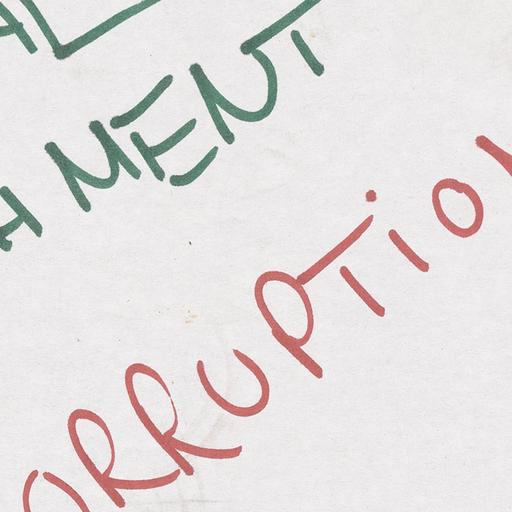 AL
AMENT
ORRUPTION